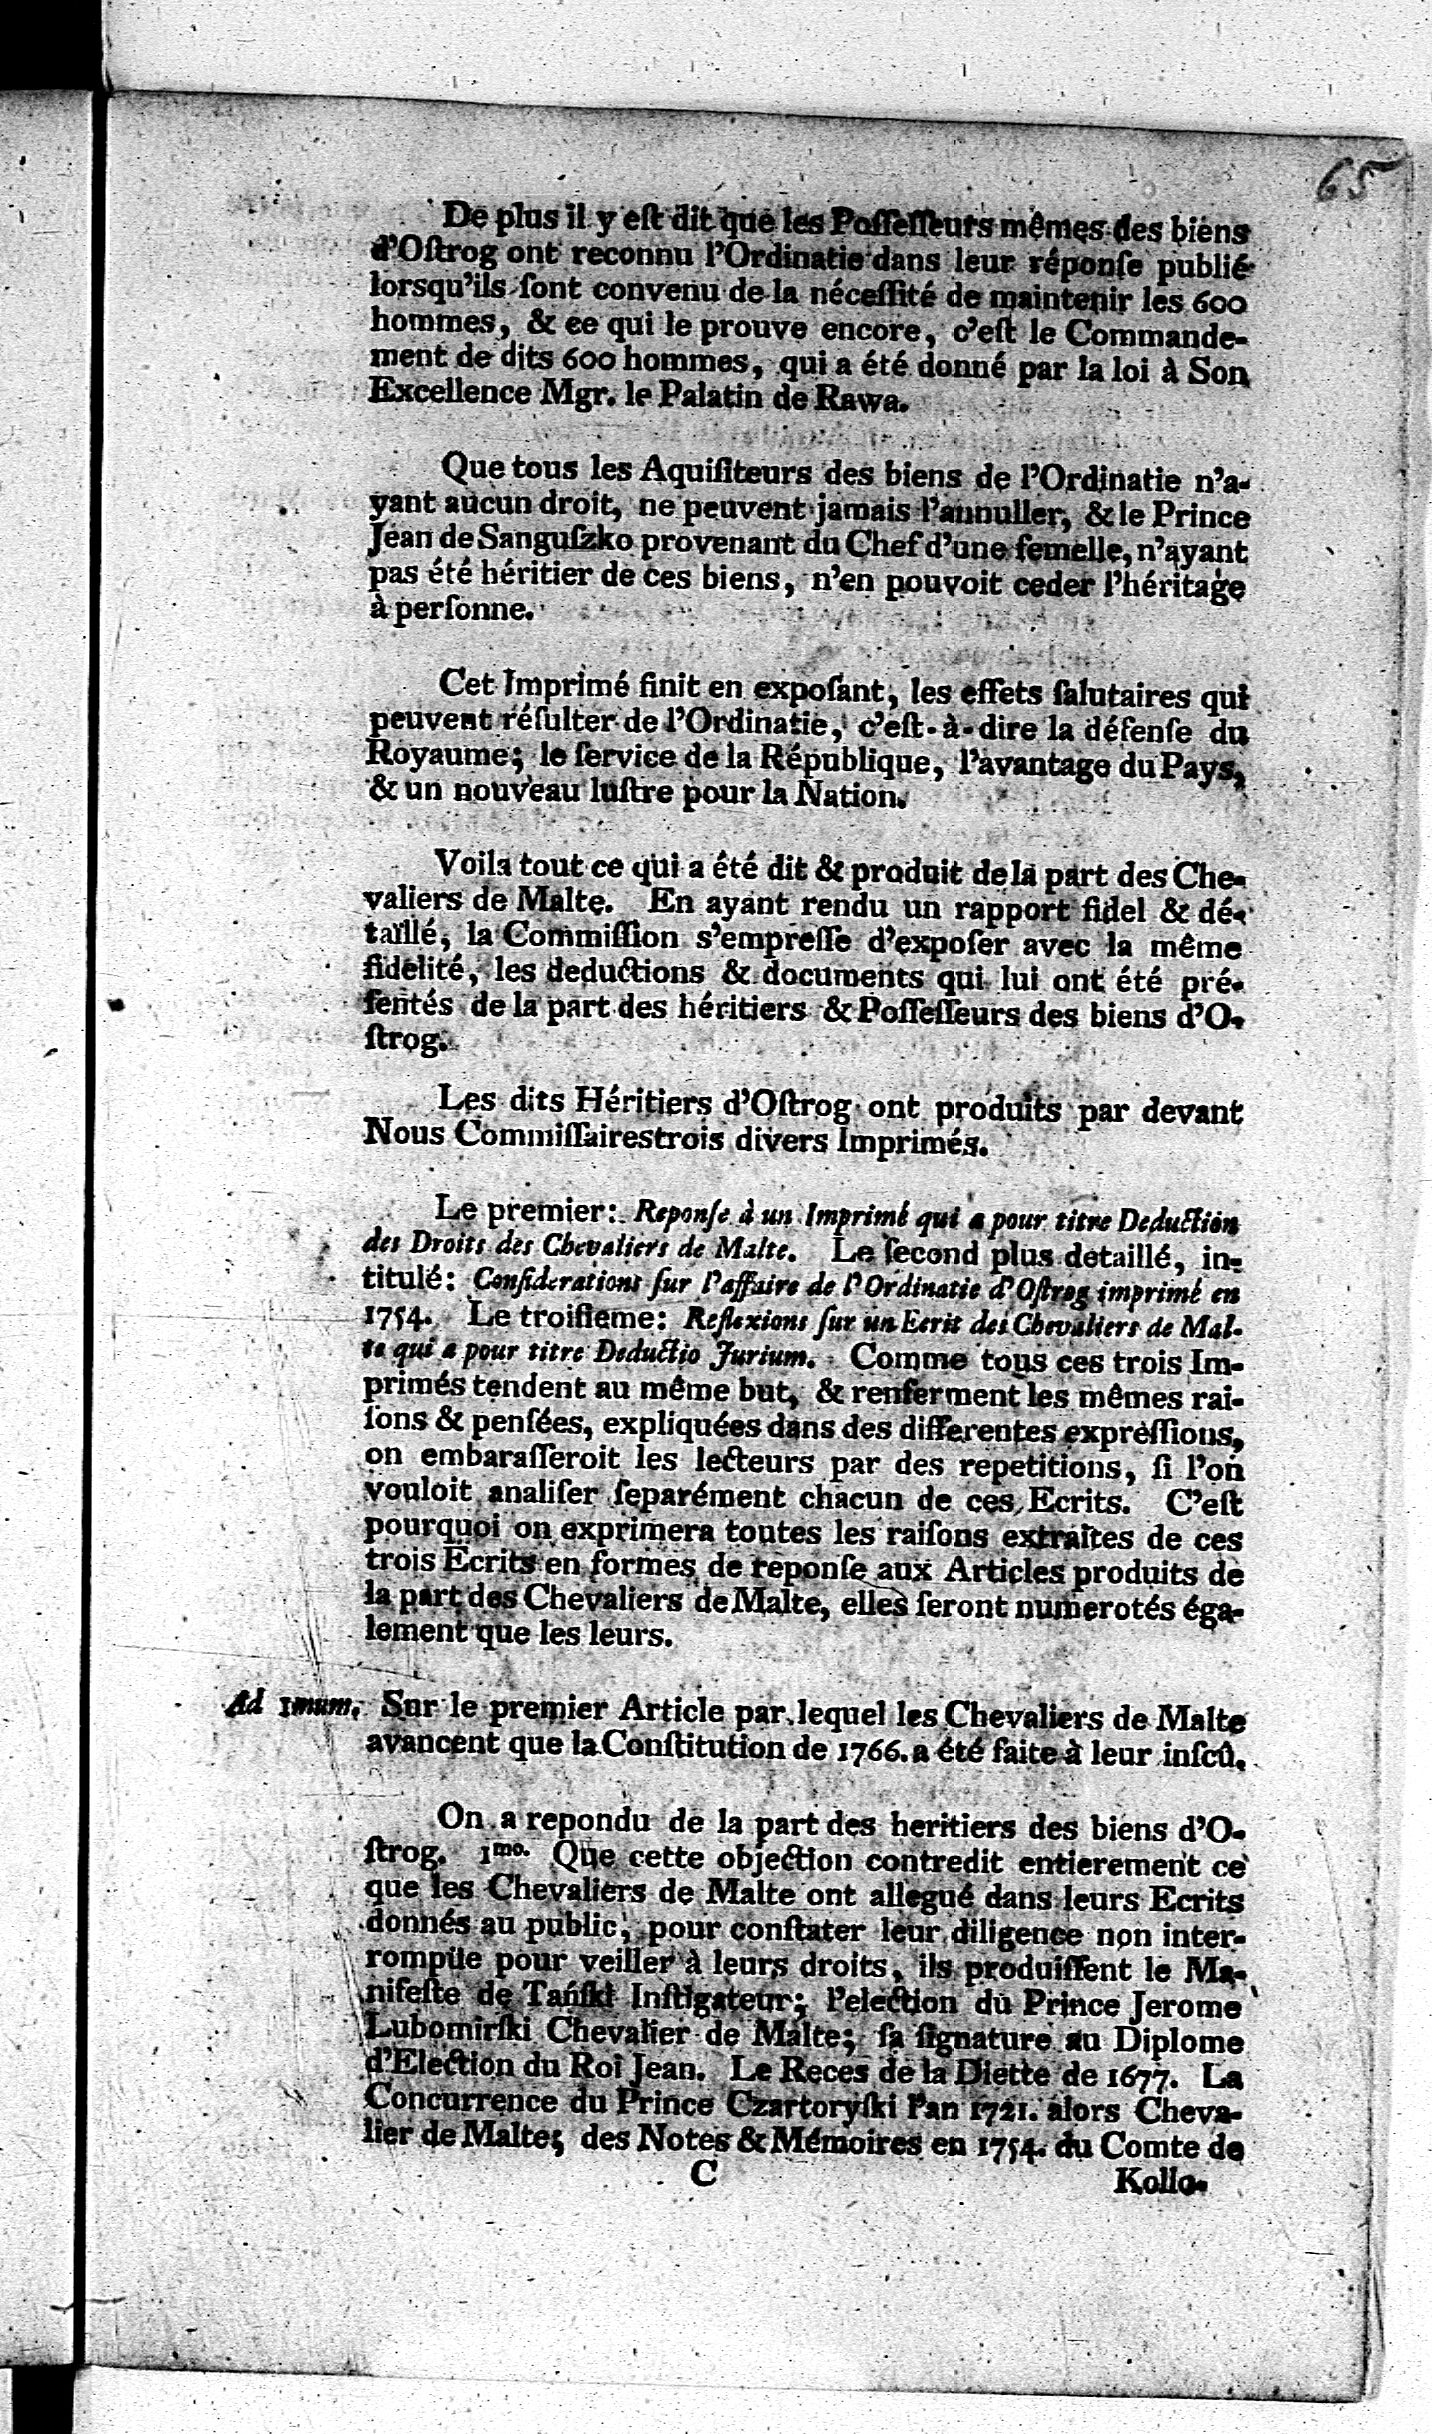 65
De plus il y eſt dit que les Poſſeſſeurs mêmes des biens
d'Oſtrog ont reconnu l'Ordinatie dans leur réponſe publié
lorsqu'ils ſont convenu de la néceſſité de maintenir les 600
hommes, & ce qui le prouve encore, c'eſt le Commande-
ment de dits 600 hommes, qui a été donné par la loi à Son
Excellence Mgr. le Palatin de Rawa.
Que tous les Aquiſiteurs des biens de l'Ordinatie n'a-
yant aucun droit, ne peuvent jamais l'annuller, & le Prince
Jean de Sanguſzko provenant du Chef d'une femelle, n'ayant
pas été héritier de ces biens, n'en pouvoit ceder l'héritage
à perſonne.
Cet Imprimé finit en expoſant, les effets ſalutaires qui
peuvent réſulter de l'Ordinatie, c'eſt-à-dire la défenſe du
Royaume; le ſervice de la République, l'avantage du Pays,
& un nouveau luſtre pour la Nation.
Voila tout ce qui a été dit & produit de la part des Che-
valiers de Malte. En ayant rendu un rapport fidel & dé-
taillé, la Commiſſion s'empreſſe d'expoſer avec la même
fidelité, les deductions & documents qui lui ont été pré-
ſentés de la part des héritiers & Poſſeſſeurs des biens d'O-
ſtrog.
Les dits Héritiers d'Oſtrog ont produits par devant
Nous Commiſſairestrois divers Imprimés.
Le premier: Reponſe à un Imprimé qui a pour titre Deduction
des Droits des Chevaliers de Malte. Le ſecond plus detaillé, in-
titulé: Conſiderations ſur l'affaire de l'Ordinatie d'Oſtrog imprimé en
1754. Le troiſieme: Reflexions ſur un Ecrit des Chevaliers de Mal-
te qui a pour titre Deductio Jurium. Comme tous ces trois Im-
primés tendent au même but, & renferment les mêmes rai-
ſons & penſées, expliquées dans des differentes expreſſions,
on embaraſſeroit les lecteurs par des repetitions, ſi l'on
vouloit analiſer ſeparément chacun de ces Ecrits. C'eſt
pourquoi on exprimera toutes les raiſons extraites de ces
trois Ecrits en formes de reponſe aux Articles produits de
la part des Chevaliers de Malte, elles ſeront numerotés éga-
lement que les leurs.
Ad 1mum. Sur le premier Article par lequel les Chevaliers de Malte
avancent que la Conſtitution de 1766. a été faite à leur inſcû.
On a repondu de la part des heritiers des biens d'O-
ſtrog. 1mo. Que cette objection contredit entierement ce
que les Chevaliers de Malte ont allegué dans leurs Ecrits
donnés au public, pour conſtater leur diligence non inter-
rompüe pour veiller à leurs droits, ils produiſſent le Ma-
nifeſte de Tańſki Inſtigateur; l'election du Prince Jerome
Lubomirſki Chevalier de Malte; ſa ſignature au Diplome
d'Election du Roi Jean. Le Reces de la Diette de 1677. La
Concurrence du Prince Czartoryſki l'an 1721. alors Cheva-
lier de Malte; des Notes & Mémoires en 1754. du Comte de
C
Kollo-